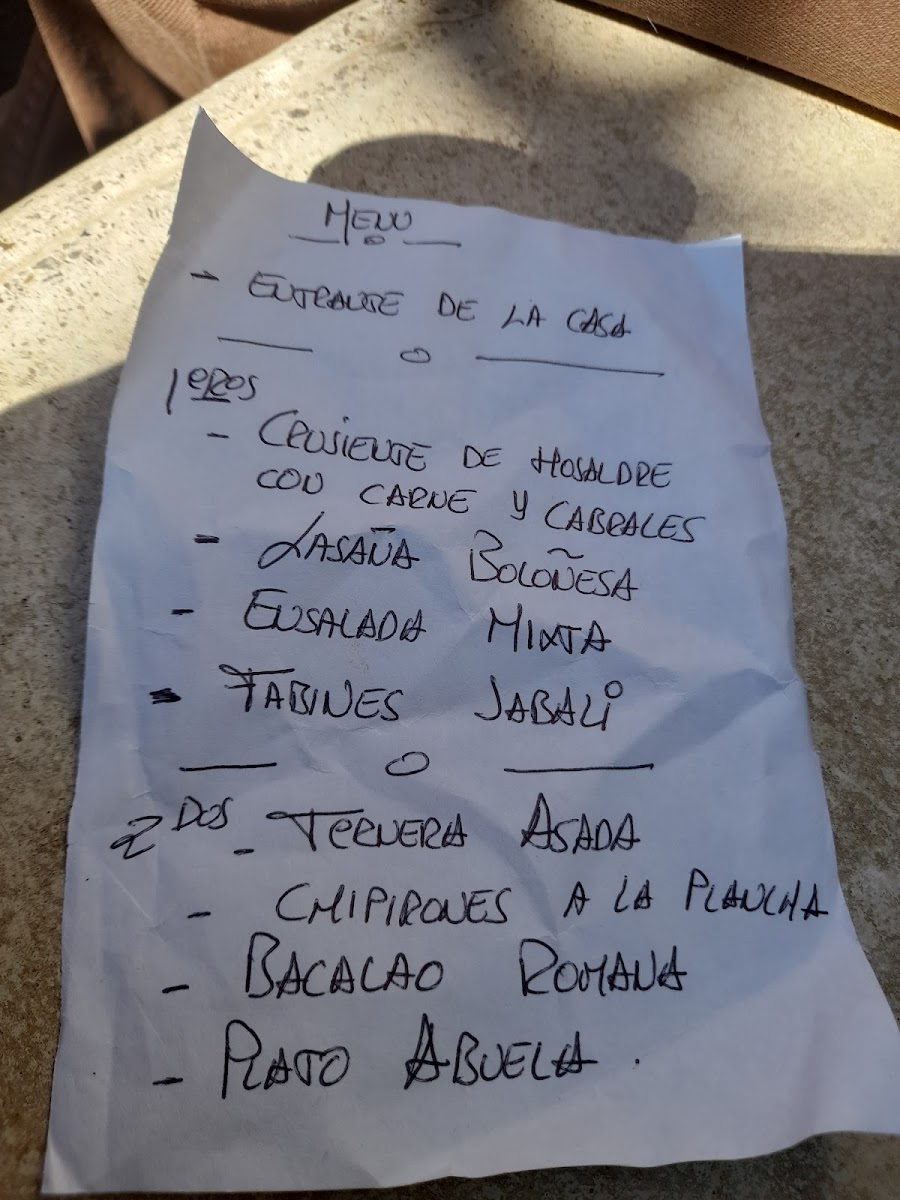 MENU
- ENTRANTE DE LA CASA
1eros
- CRUSIENTE DE HOSALDRE
CON CARNE Y CABRALES
- LASAÑA BOLOÑESA
- ENSALADA MIXTA
- FABINES JABALI
2DOS - TERNERA ASADA
- CHIPIRONES A LA PLANCHA
- BACALAO ROMANA
- PLATO ABUELA.